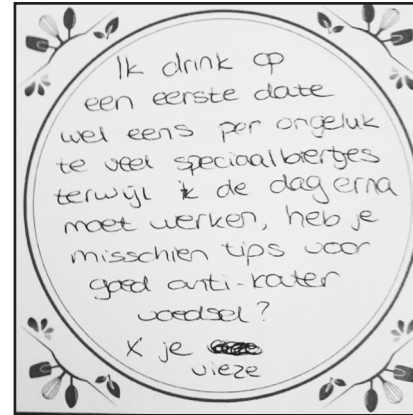 Ik drink op
een eerste date
wel eens per ongeluk
te veel speciaalbiertjes
terwijl ik de dag erna
moet werken, heb je
misschien tips voor
goed anti-kater
voedsel?
X je
vieze